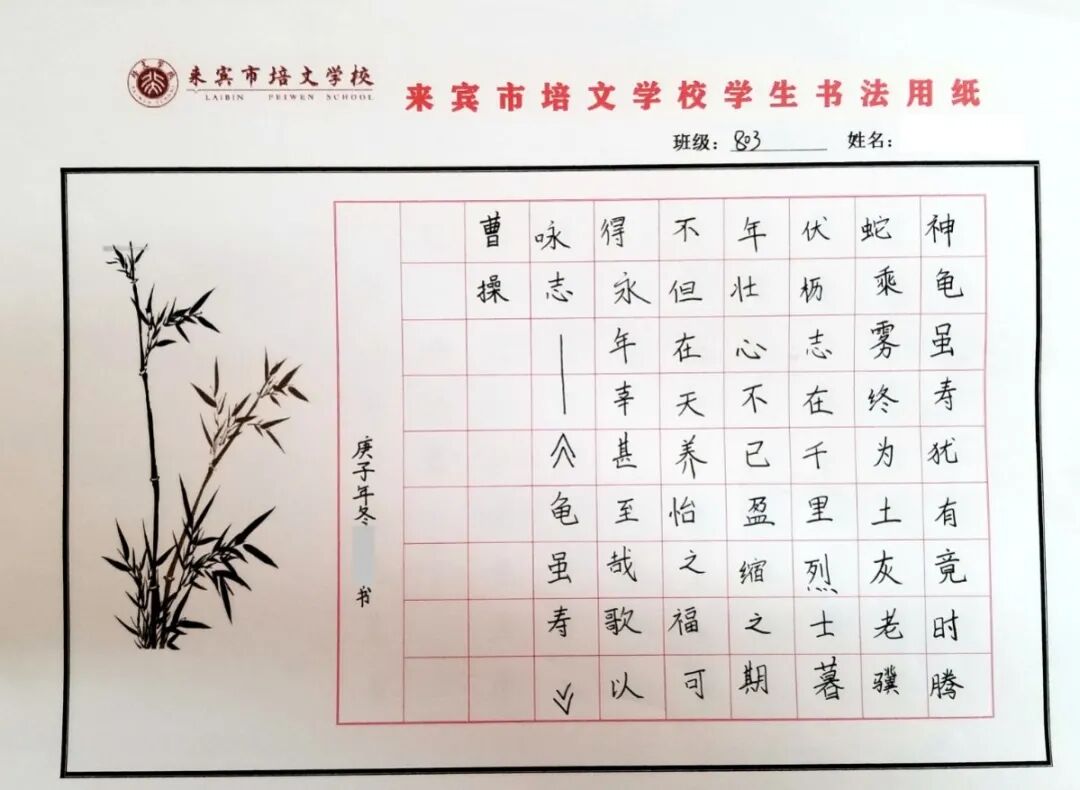 来宾市培文学校
LAIBIN PEIWEN SCHOOL
来宾市培文学校学生书法用纸
班级：803 姓名：
神龟虽寿犹有竟时腾
蛇乘雾终为土灰老骥
伏枥志在千里烈士暮
年壮心不已盈缩之期
不但在天养怡之福可
得永年幸甚至哉歌以
咏志——《龟虽寿》
曹操
庚子年冬 书